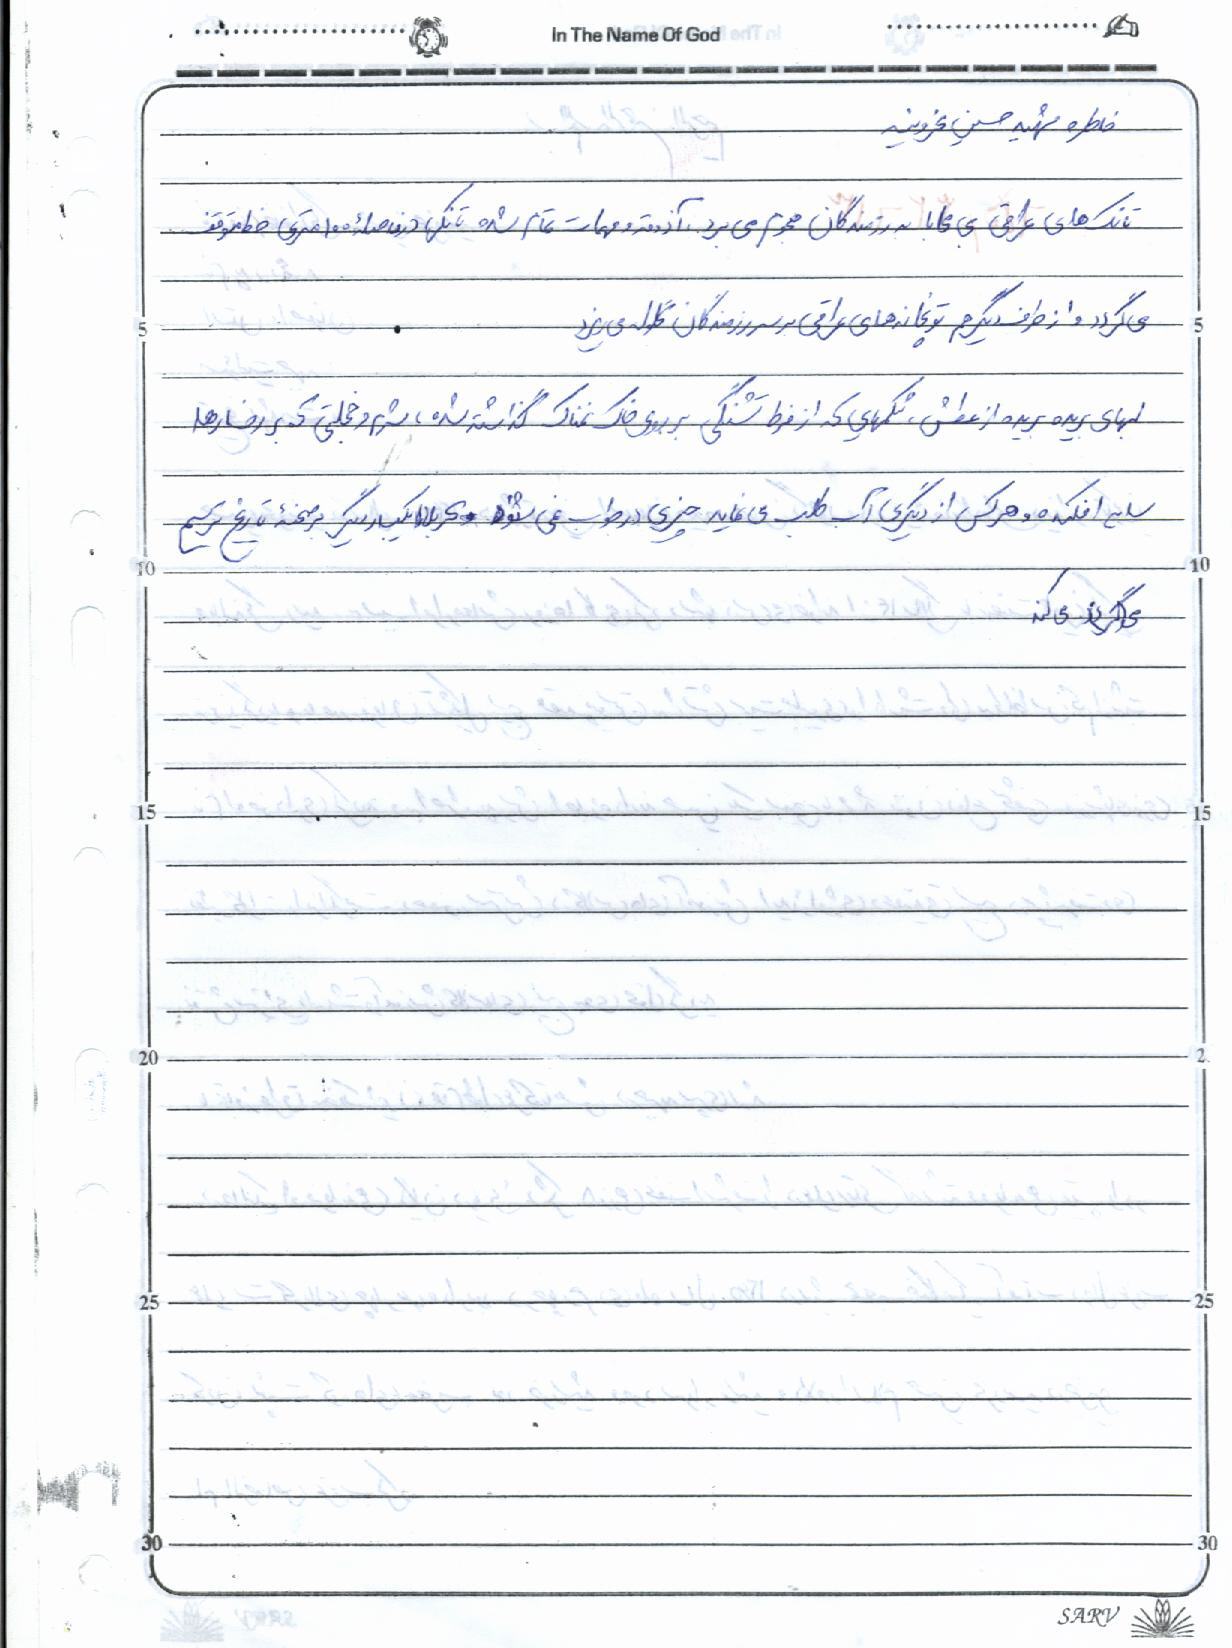 In The Name Of God
خاطره شهید حسین
تانک‌های عراقی بی محابا به رزمندگان هجوم می برد، آذوقه و مهمات تمام شده تانکها در فاصلهٔ ۱۰۰ متری خط متوقف
می گردد و از طرف دیگر هم توپخانه‌های عراقی بر سر رزمندگان گلوله می ریزد
لبهای بریده بریده از عطش، شکمهایی که از فرط تشنگی بر روی خاک نمناک گذاشته شده، شرم و خجلتی که بر رخسارها
سایه افکنده و هر کس از دیگری آب طلب می نماید چیزی در جواب نمی شنود و کربلا یکبار دیگر بر صفحهٔ تاریخ ترسیم
می کند
5 5
10 10
15 15
20 2
25 25
30 30
SARV